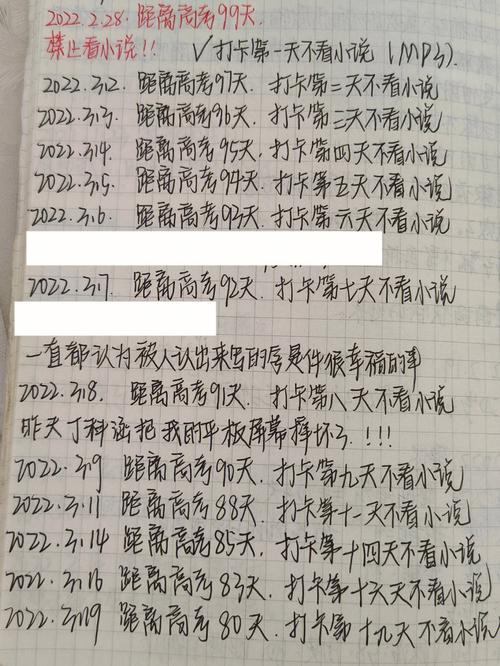 2022.2.28. 距离高考99天.
禁止看小说!! ✓打卡第一天不看小说 (MP3).
2022.3.2. 距离高考97天. 打卡第二天不看小说
2022.3.3. 距离高考96天. 打卡第三天不看小说
2022.3.4. 距离高考95天. 打卡第四天不看小说
2022.3.5. 距离高考94天. 打卡第五天不看小说
2022.3.6. 距离高考93天. 打卡第六天不看小说
2022.3.7. 距离高考92天. 打卡第七天不看小说
一直都认为被人认出来写的字是件很幸福的事
2022.3.8. 距离高考91天. 打卡第八天不看小说
昨天丁科涵把我的平板屏幕摔坏了.!!!
2022.3.9 距离高考90天. 打卡第九天不看小说
2022.3.11 距离高考88天. 打卡第十一天不看小说
2022.3.14 距离高考85天. 打卡第十四天不看小说
2022.3.16 距离高考83天. 打卡第十六天不看小说
2022.3.19 距离高考80天. 打卡第十九天不看小说